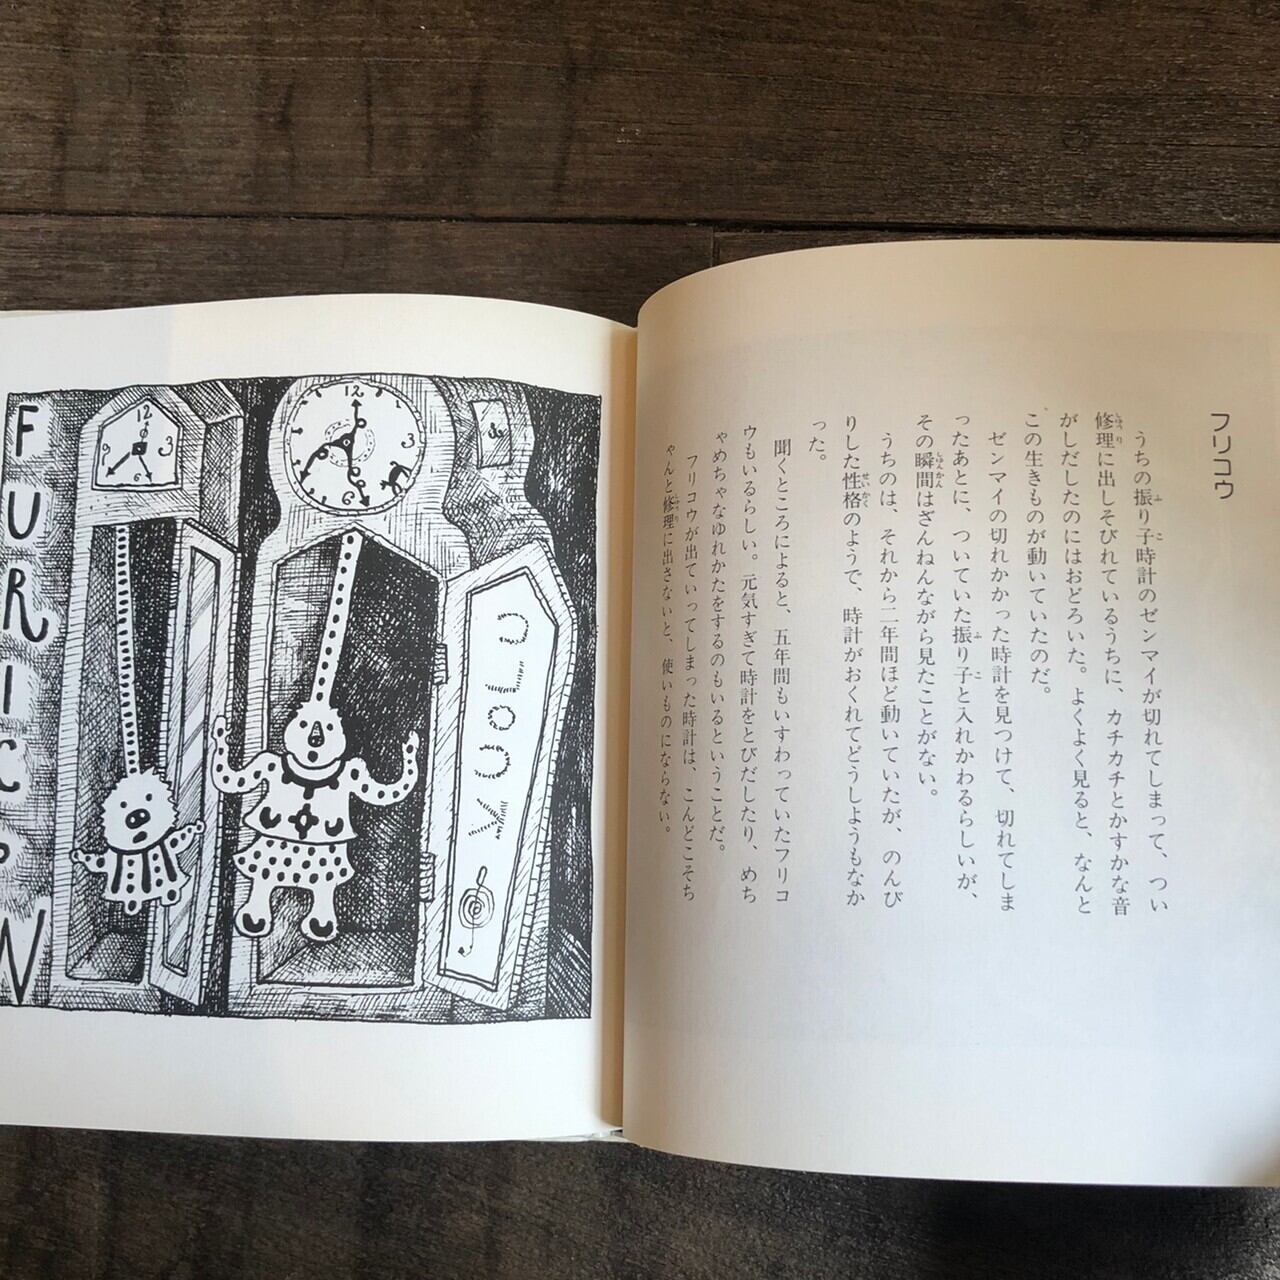 フリコウ
うちの振り子時計のゼンマイが切れてしまって、つい
修理に出しそびれているうちに、カチカチとかすかな音
がしだしたのにはおどろいた。よくよく見ると、なんと
この生きものが動いていたのだ。
ゼンマイの切れかかった時計を見つけて、切れてしま
ったあとに、ついていた振り子と入れかわるらしいが、
その瞬間はざんねんながら見たことがない。
うちのは、それから二年間ほど動いていたが、のんび
りした性格のようで、時計がおくれてどうしようもなか
った。
聞くところによると、五年間もいすわっていたフリコ
ウもいるらしい。元気すぎて時計をとびだしたり、めち
ゃめちゃなゆれかたをするのもいるということだ。
フリコウが出ていってしまった時計は、こんどこそち
ゃんと修理に出さないと、使いものにならない。
12
3
12
3
CLOCK